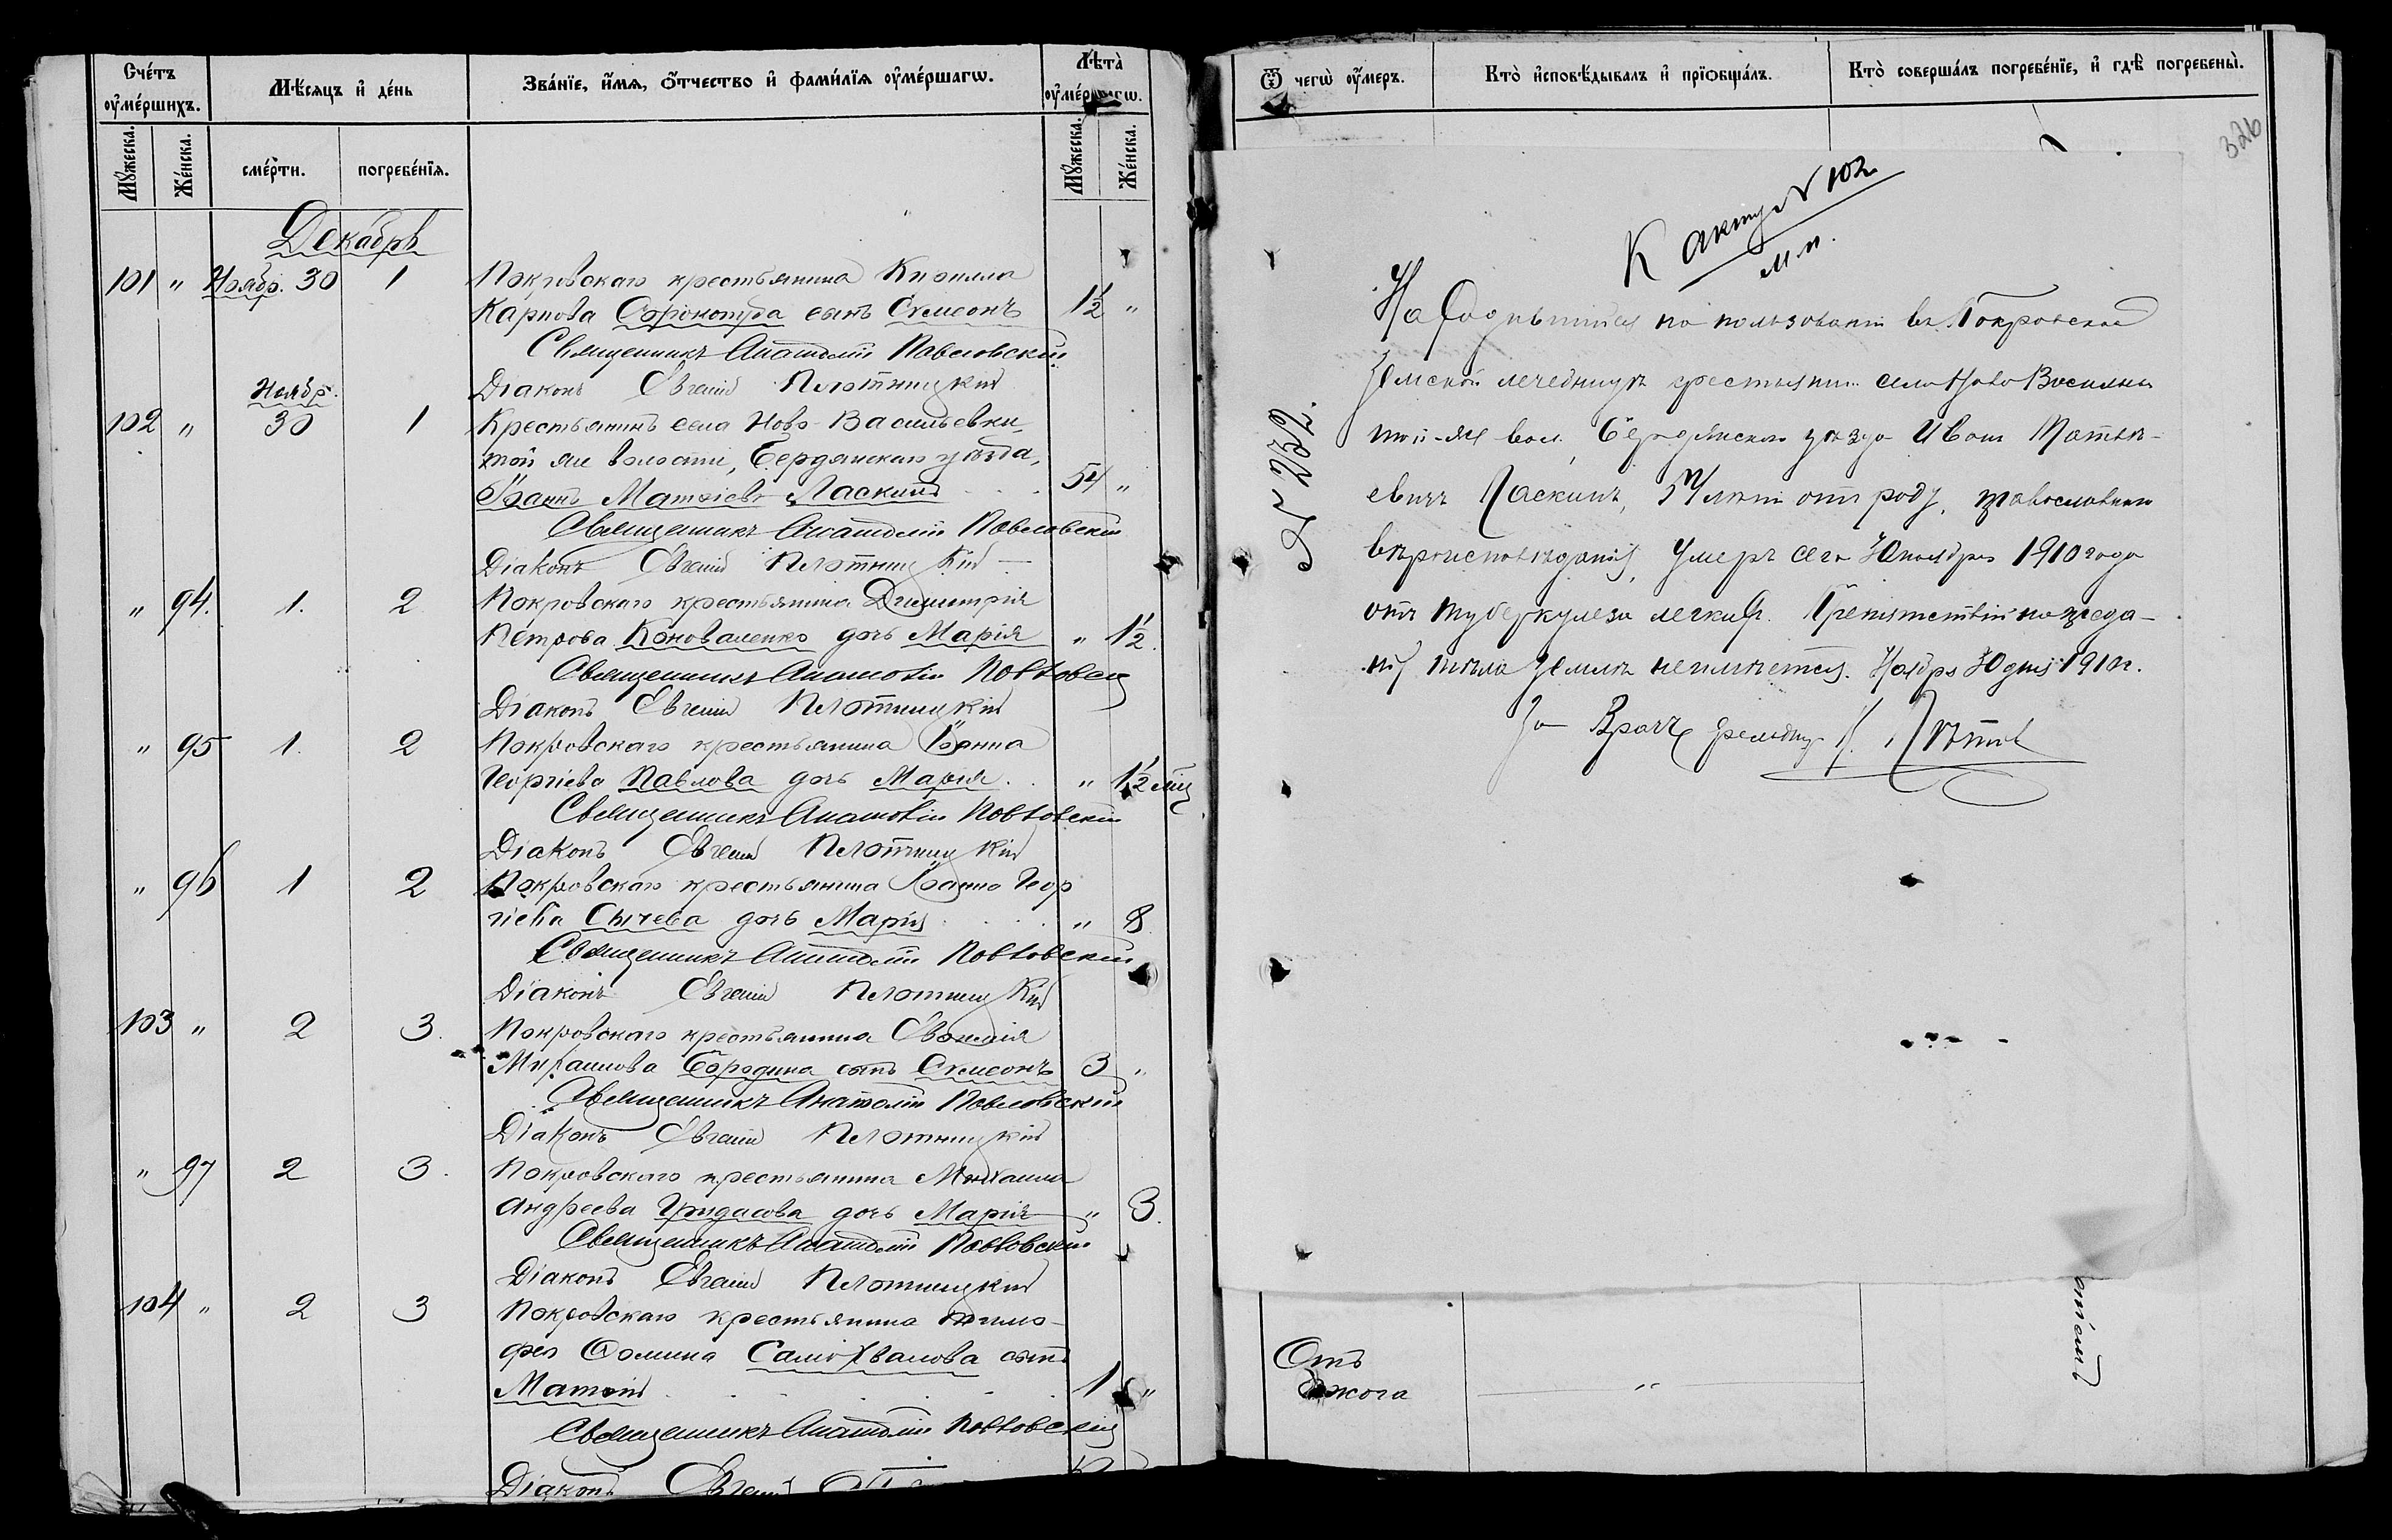 Счетъ оумершихъ.
Мѣсяцъ и день
Званіе, имя, отчество и фамилія оумершагω.
Лѣта оумершагω.
Мужеска.
Женска.
смерти.
погребенія.
Мужеска.
Женска.
Декабрь
101 " Ноябр. 30 1 Покровскаго крестьянина Кирилла
Карпова Сорокотуба сынъ Симеонъ 1½ "
Священникъ Анатолій Павловскій
Ноябр. Діаконъ Евгеній Плотницкій
102 " 30 1 Крестьянинъ села Ново-Васильевки,
той же волости, Бердянскаго уѣзда,
Іоаннъ Матѳіевъ Ласкинъ 54 "
Священникъ Анатолій Павловскій
Діаконъ Евгеній Плотницкій
" 94. 1. 2 Покровскаго крестьянина Димитрія
Петрова Коноваленко дочь Марія " 1½.
Священникъ Анатолій Павловскій
Діаконъ Евгеній Плотницкій
" 95 1. 2 Покровскаго крестьянина Іоанна
Георгіева Павлова дочь Марія " 1½ мѣс
Священникъ Анатолій Павловскій
Діаконъ Евгеній Плотницкій
" 96 1 2 Покровскаго крестьянина Іоанна Геор
гіева Сычева дочь Марія " 8.
Священникъ Анатолій Павловскій
Діаконъ Евгеній Плотницкій
103 " 2 3. Покровскаго крестьянина
Михаилова Бородина сынъ Симеонъ 3 "
Священникъ Анатолій Павловскій
Діаконъ Евгеній Плотницкій
" 97 2 3. Покровскаго крестьянина Михаила
Андреева Гридасова дочь Марія " 3.
Священникъ Анатолій Павловскій
Діаконъ Евгеній Плотницкій
104 " 2 3 Покровскаго крестьянина Тимо-
фея Ѳомина Самохвалова сынъ
Матѳій 1 "
Священникъ Анатолій Павловскій
Діаконъ Евгеній
Ѿ чегω оумеръ.
Кто исповѣдывалъ и пріобщалъ.
Кто совершалъ погребеніе, и гдѣ погребены.
326
К акту № 102
м. п.
№ 252.
Находившійся на пользованіи въ Покровской
Земской лечебницѣ крестьянин села Ново Васильев
той-же вол. Бердянскаго уѣзда Иванъ Матвѣ-
евичъ Ласкинъ, 54 лѣтъ отъ роду, православнаго
вѣроисповѣданія, умеръ сего 30 ноября 1910 года
отъ туберкулеза легкихъ. Препятствій по преда-
нію тѣла землѣ не имѣется. Ноябрь 30 дня 1910 г.
За Врача фельдшер
Отъ
ожога "